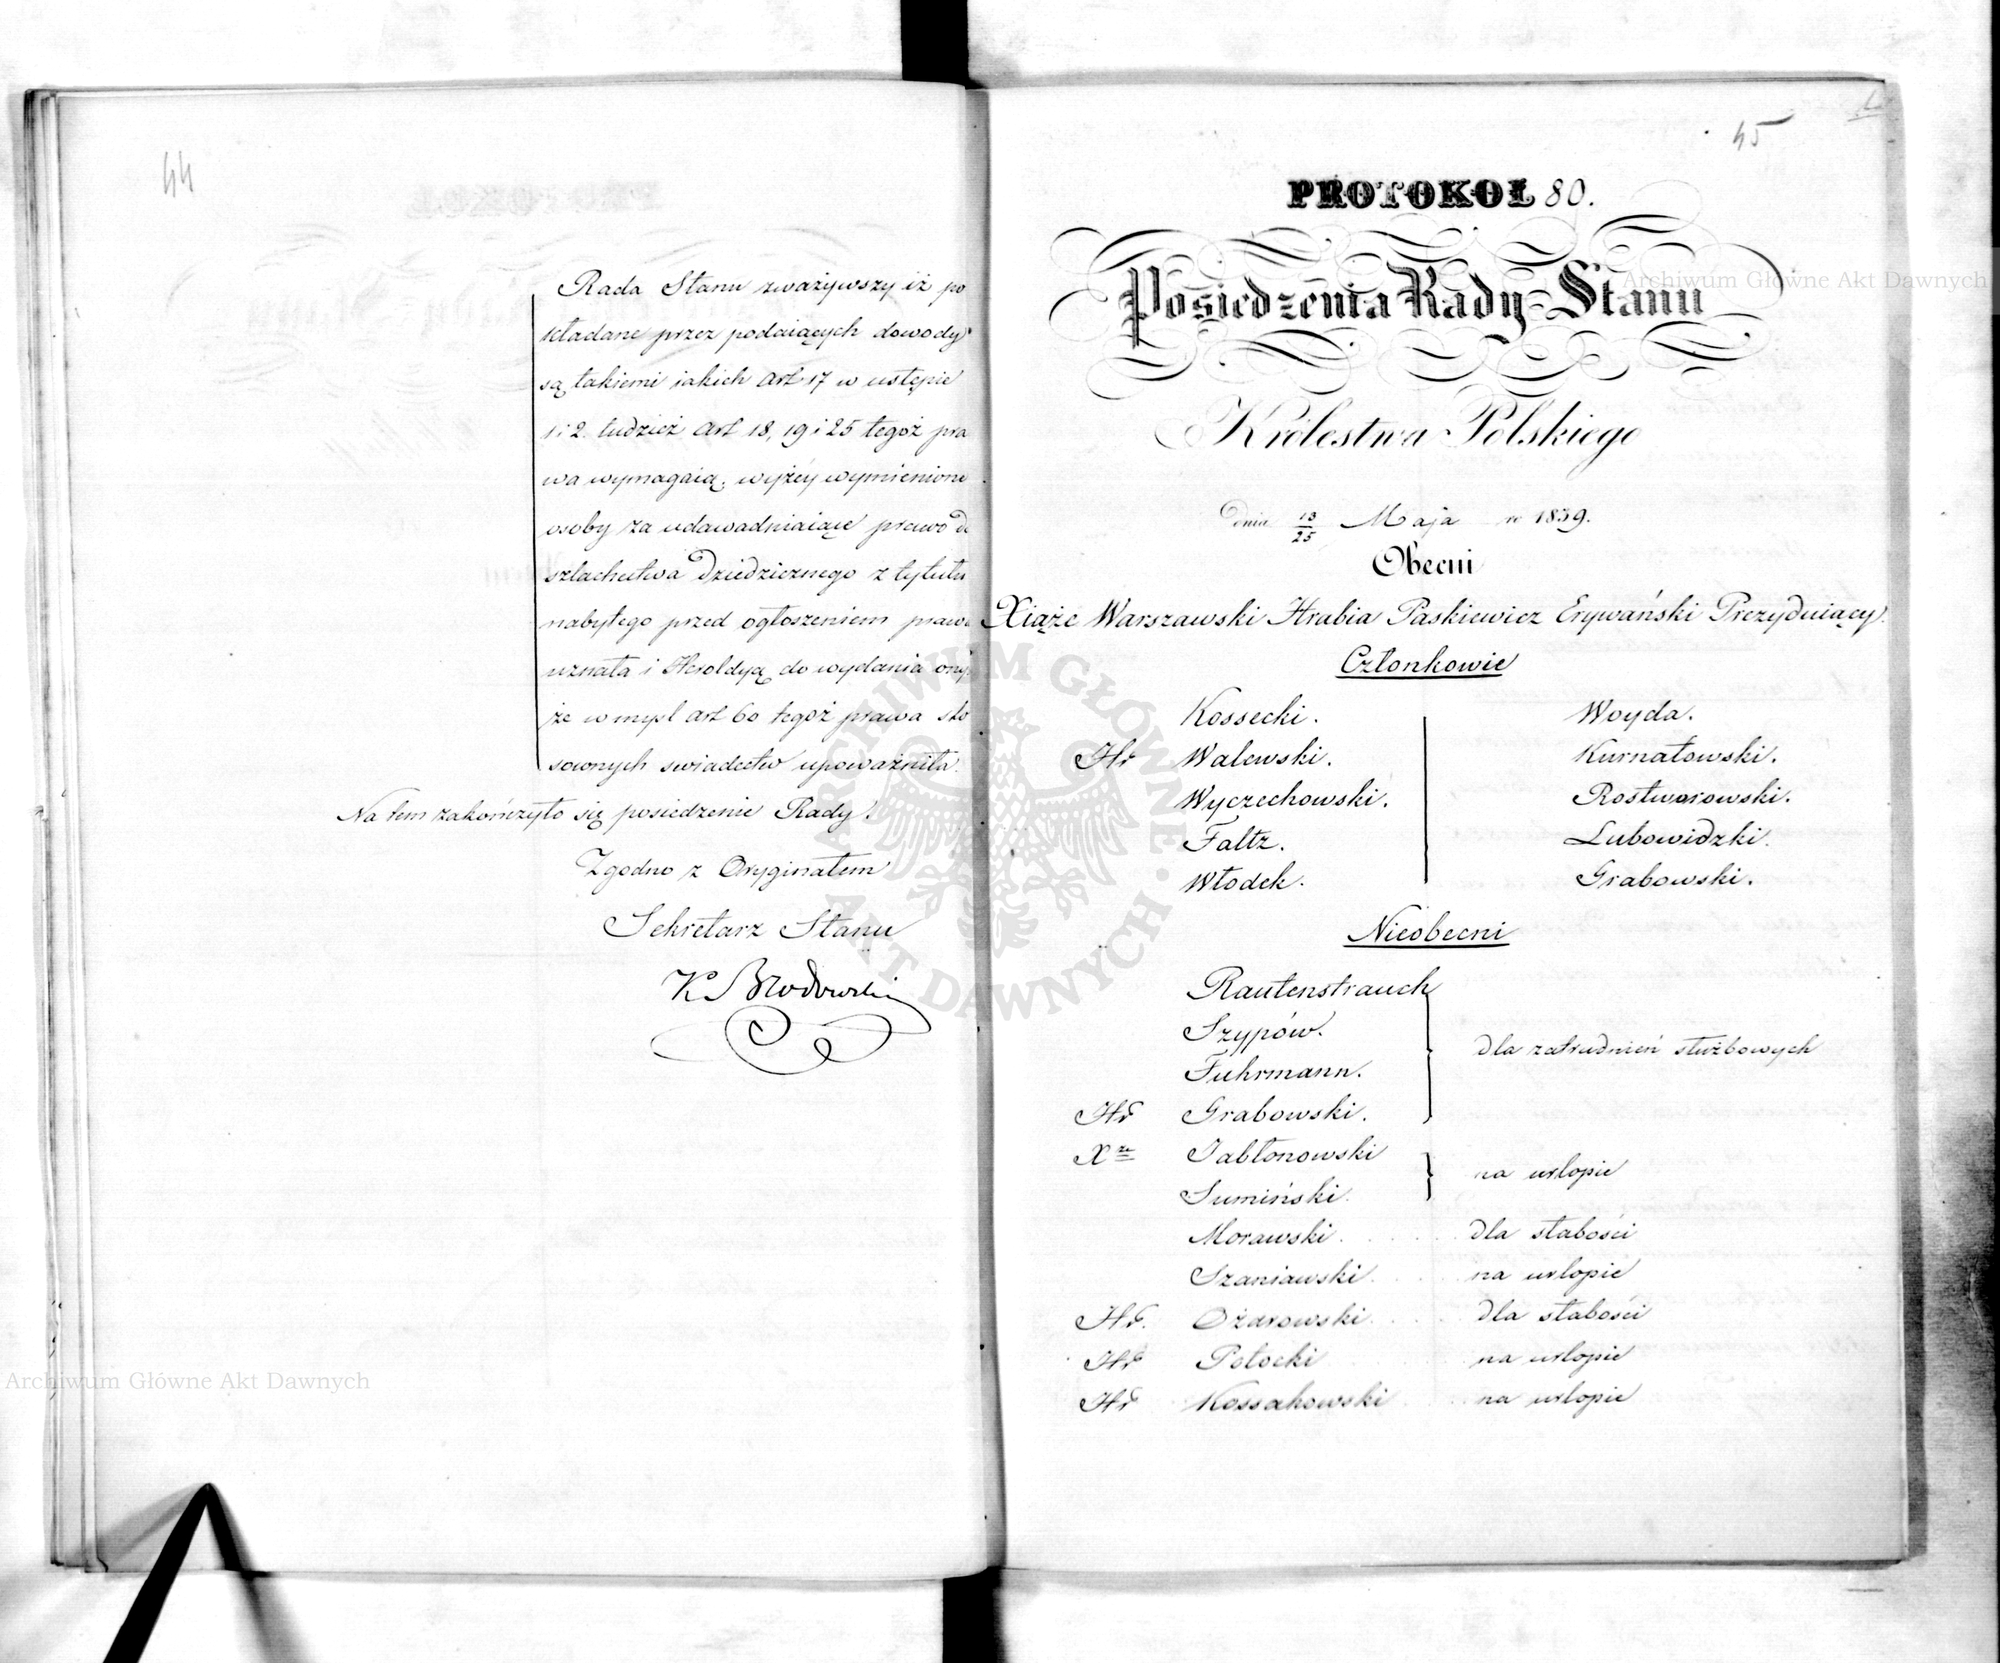 44
Rada Stanu zważywszy iż po
kładane przez podaiących dowody
są takiemi iakich art 17 w ustępie
1 i 2. tudzież art 18, 19 i 25 tegoż pra
wa wymagaią, wyżéy wymienione
osoby za udawadniaiące prawo do
szlachectwa dziedzicznego z tytułu
nabytego przed ogłoszeniem prawa
uznała i Heroldyą do wydania onym
że w mysl art 60 tegoż prawa sto
sownych swiadectw upoważniła.
Na tem zakończyło się posiedzenie Rady.
Zgodno z Oryginałem
Sekretarz Stanu
K Brodowski
45
PROTOKÓŁ 80.
Posiedzenia Rady Stanu
Królestwa Polskiego
dnia 13/25 Maja r 1839.
Obecni
Xiąże Warszawski Hrabia Paskiewicz Erywański Prezyduiący.
Członkowie
Kossecki. Woyda.
Hr Walewski. Kurnatowski.
Wyczechowski. Rostworowski.
Faltz. Lubowidzki.
Włodek. Grabowski.
Nieobecni
Rautenstrauch
Szypów.
Fuhrmann. dla zatrudnień służbowych
Hr Grabowski.
Xże Jabłonowski
Sumiński. na urlopie
Morawski. dla słabości
Szaniawski. na urlopie
Hr. Ożarowski. dla słabości
Hr Potocki na urlopie
Hr Kossakowski na urlopie
Archiwum Główne Akt Dawnych
Archiwum Główne Akt Dawnych
ARCHIWUM GŁÓWNE AKT DAWNYCH